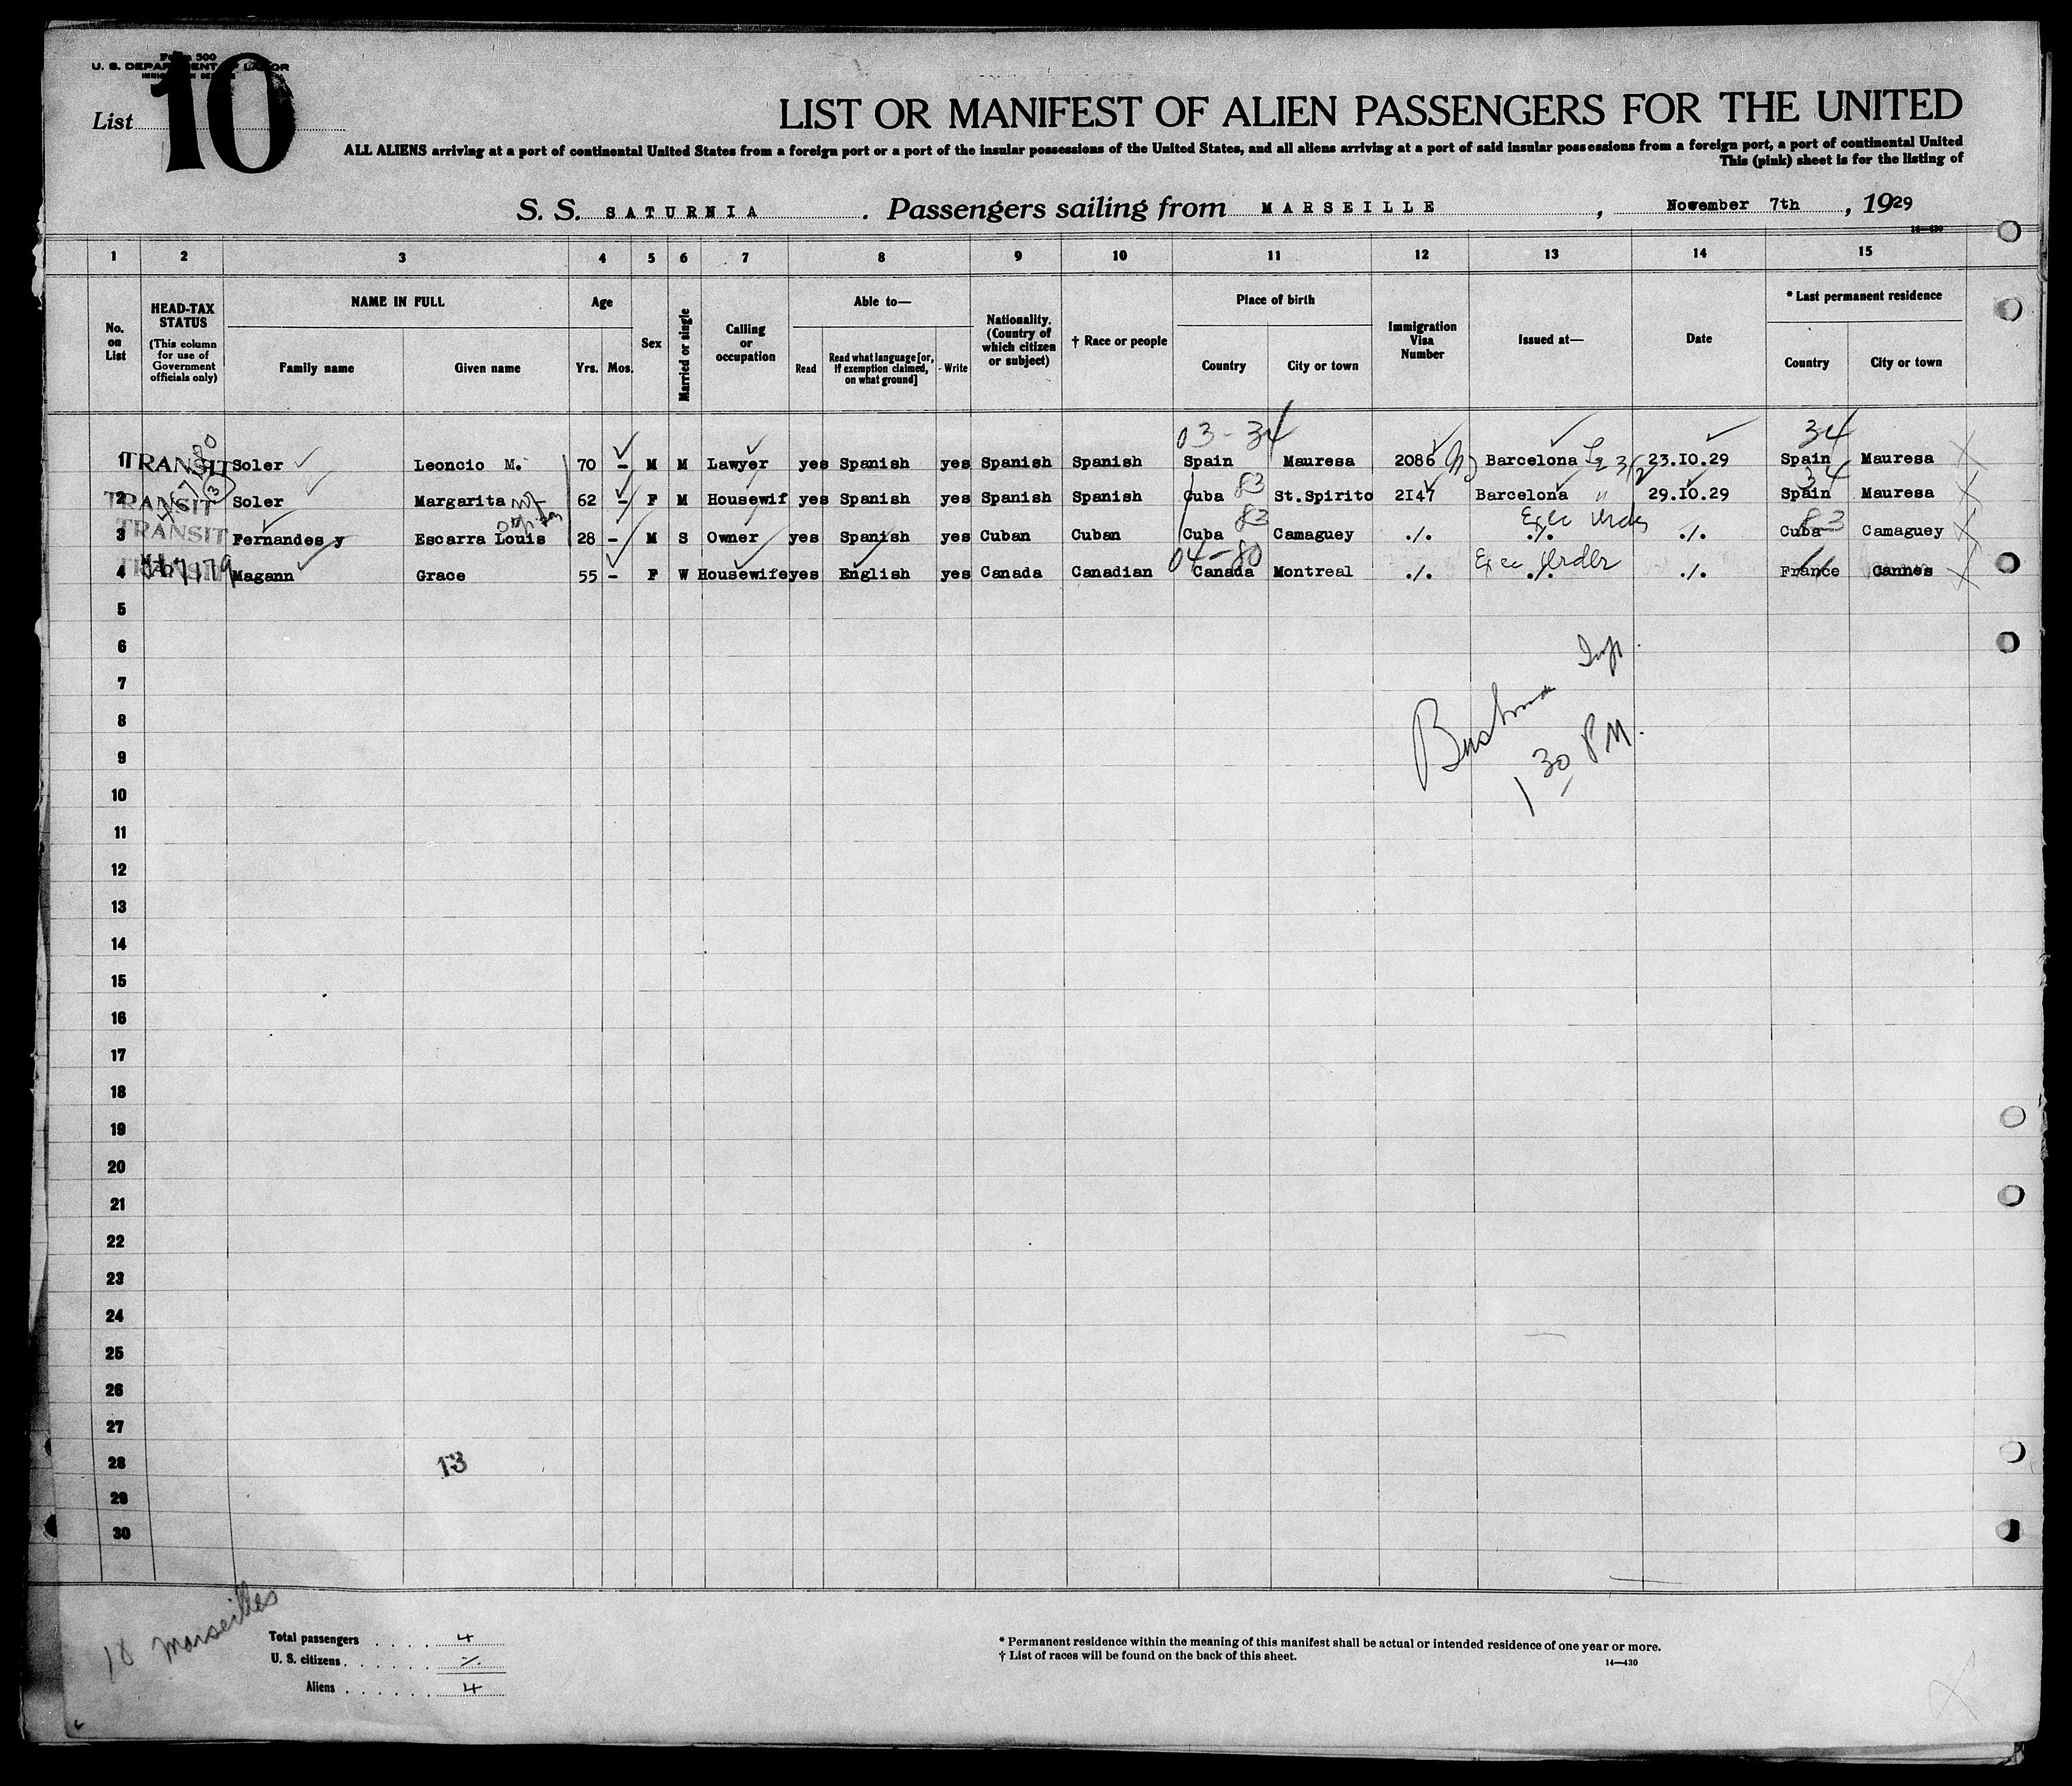 Form 500
U. S. DEPARTMENT OF LABOR
IMMIGRATION SERVICE
List 10
LIST OR MANIFEST OF ALIEN PASSENGERS FOR THE UNITED
ALL ALIENS arriving at a port of continental United States from a foreign port or a port of the insular possessions of the United States, and all aliens arriving at a port of said insular possessions from a foreign port, a port of continental United
This (pink) sheet is for the listing of
S. S. SATURNIA . Passengers sailing from MARSEILLE , November 7th , 1929
14—430
1 2 3 4 5 6 7 8 9 10 11 12 13 14 15
No. on List
HEAD-TAX STATUS
(This column for use of Government officials only)
NAME IN FULL
Family name Given name
Age
Yrs. Mos.
Sex
Married or single
Calling or occupation
Able to—
Read
Read what language [or, if exemption claimed, on what ground]
Write
Nationality. (Country of which citizen or subject)
† Race or people
Place of birth
Country City or town
Immigration Visa Number
Issued at—
Date
* Last permanent residence
Country City or town
03-34 34
1 TRANSIT Soler Leoncio M. 70 - M M Lawyer yes Spanish yes Spanish Spanish Spain Mauresa 2086 Barcelona 23.10.29 Spain Mauresa
83 34
2 TRANSIT Soler Margarita 62 - F M Housewif yes Spanish yes Spanish Spanish Cuba St.Spirito 2147 Barcelona " 29.10.29 Spain Mauresa
83 Exec 83
3 TRANSIT Fernandes y Escarra Louis 28 - M S Owner yes Spanish yes Cuban Cuban Cuba Camaguey ./. ./. ./. Cuba Camaguey
04-80 Exec Order
4 TRANSIT Magann Grace 55 - F W Housewife yes English yes Canada Canadian Canada Montreal ./. ./. ./. France Cannes
5
6
Insp.
7
8
9
1 30 P M.
10
11
12
13
14
15
16
17
18
19
20
21
22
23
24
25
26
27
28
13
29
30
18 Marseilles
Total passengers . . . . 4
U. S. citizens . . . . . . ./.
Aliens . . . . . . 4
* Permanent residence within the meaning of this manifest shall be actual or intended residence of one year or more.
† List of races will be found on the back of this sheet.
14—430